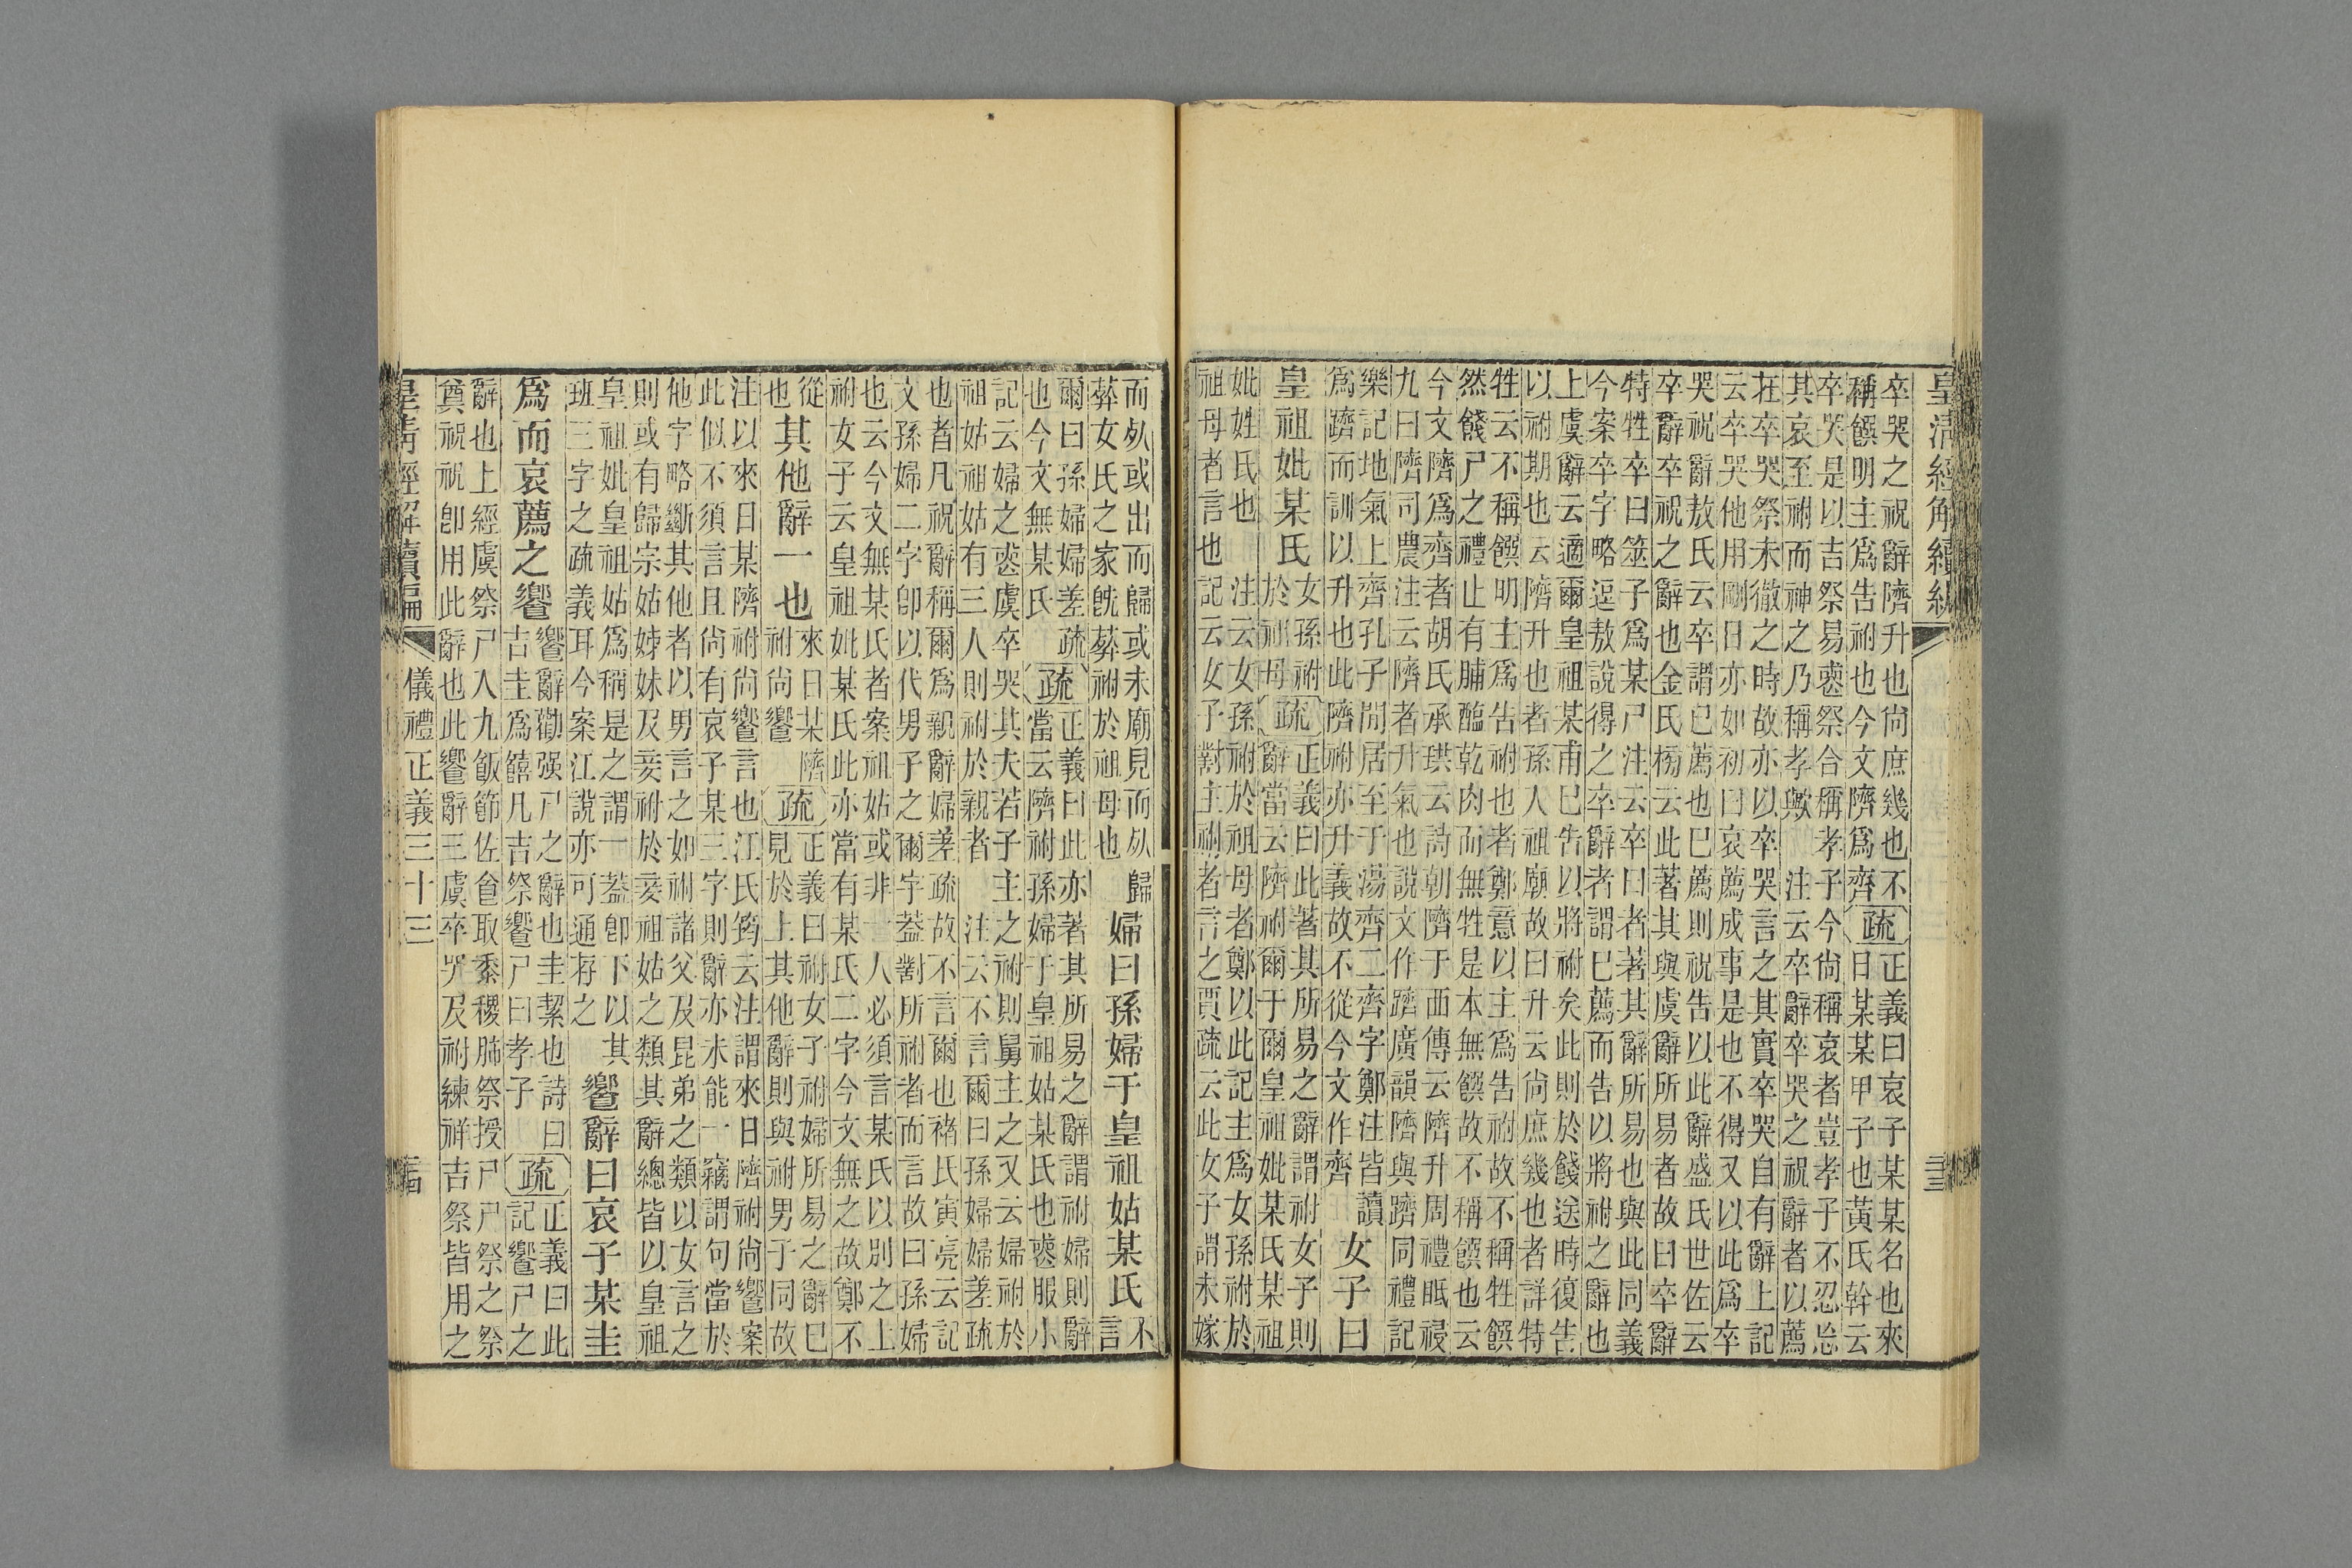 皇清經解續編
卒哭之祝辭隮升也尚庶幾也不
稱饌明主爲告祔也今文隮爲齊疏正義曰哀子某某名也來
日某某甲子也黃氏幹云
卒哭是以吉祭易喪祭合稱孝子今尚稱哀者豈孝子不忍忘
其哀至祔而神之乃稱孝歟 注云卒辭卒哭之祝辭者以薦
在卒哭祭未徹之時故亦以卒哭言之其實卒哭自有辭上記
云卒哭他用剛日亦如初曰哀薦成事是也不得又以此爲卒
哭祝辭敖氏云卒謂已薦也已薦則祝告以此辭盛氏世佐云
卒辭卒祝之辭也金氏榜云此著其與虞辭所易者故曰卒辭
特牲卒曰筮子爲某尸注云卒曰者著其辭所易也與此同義
今案卒字略逗敖說得之卒辭者謂已薦而告以將祔之辭也
上虞辭云適爾皇祖某甫已告以將祔矣此則於餞送時復告
以祔期也云隮升也者孫人祖廟故曰升云尚庶幾也者詳特
牲云不稱饌明主爲告祔也者鄭意以主爲告祔故不稱牲饌
然餞尸之禮止有脯醢乾肉而無牲是本無饌故不稱饌也云
今文隮爲齊者胡氏承珙云詩朝隮于西傳云隮升周禮眡祲
九曰隮司農注云隮者升氣也說文作躋廣韻隮與躋同禮記
樂記地氣上齊孔子閒居至于湯齊二齊字鄭注皆讀
爲躋而訓以升也此隮祔亦升義故不從今文作齊
女子曰
皇祖妣某氏女孫祔
於祖母疏正義曰此著其所易之辭謂祔女子則
辭當云隮祔爾于爾皇祖妣某氏某祖
妣姓氏也 注云女孫祔於祖母者鄭以此記主爲女孫祔於
祖母者言也記云女子對主祔者言之賈疏云此女子謂未嫁
而死或出而歸或未廟見而死歸
葬女氏之家旣葬祔於祖母也
婦曰孫婦于皇祖姑某氏不
言
爾曰孫婦婦差疏
也今文無某氏疏正義曰此亦著其所易之辭謂祔婦則辭
當云隮祔孫婦于皇祖姑某氏也喪服小
記云婦之喪虞卒哭其夫若子主之祔則舅主之又云婦祔於
祖姑祖姑有三人則祔於親者 注云不言爾曰孫婦婦差疏
也者凡祝辭稱爾爲親辭婦差疏故不言爾也褚氏寅亮云記
文孫婦二字卽以代男子之爾字蓋對所祔者而言故曰孫婦
也云今文無某氏者案祖姑或非一人必須言某氏以別之上
祔女子云皇祖妣某氏此亦當有某氏二字今文無之故鄭不
從
也
其他辭一也來曰某隮
祔尚饗疏正義曰祔女子祔婦所易之辭已
見於上其他辭則與祔男子同故
注以來日某隮祔尚饗言也江氏筠云注謂來日隮祔尚饗案
此似不須言且尚有哀子某三字則辭亦未能一竊謂句當於
他字略斷其他者以男言之如祔諸父及昆弟之類以女言之
則或有歸宗姑姊妹及妾祔於妾祖姑之類其辭總皆以皇祖
皇祖妣皇祖姑爲稱是之謂一蓋卽下以其
班三字之疏義耳今案江說亦可通存之
饗辭曰哀子某圭
爲而哀薦之饗饗辭勸强尸之辭也圭絜也詩曰
吉圭爲饎凡吉祭饗尸曰孝子疏正義曰此
記饗尸之
辭也上經虞祭尸入九飯節佐食取黍稷肺祭授尸尸祭之祭
奠祝祝卽用此辭也此饗辭三虞卒哭及祔練祥吉祭皆用之
皇清經解續編 儀禮正義三十三